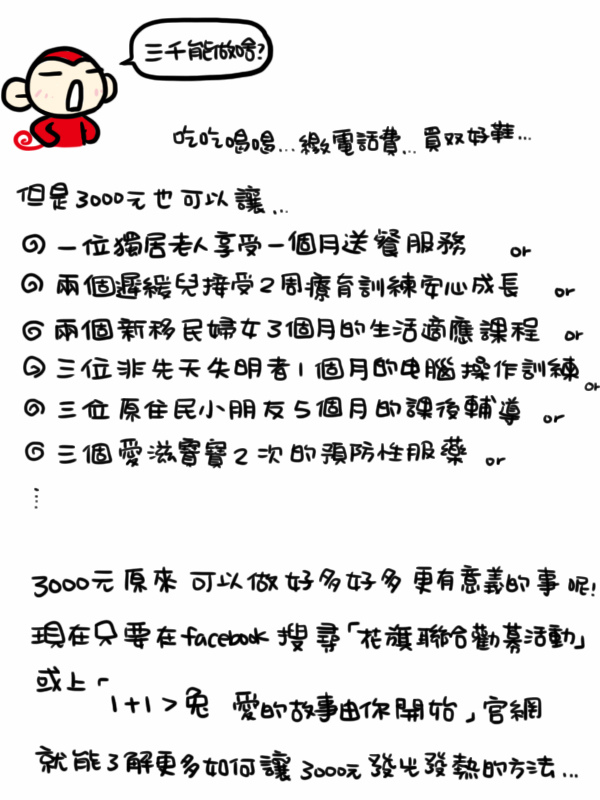 三千能做啥?
吃吃喝喝...繳電話費...買双好鞋...
但是3000元也可以讓...
一位獨居老人享受一個月送餐服務 or
兩個遲緩兒接受2周療育訓練安心成長 or
兩個新移民婦女3個月的生活適應課程 or
三位非先天失明者1個月的电腦操作訓練 or
三位原住民小朋友5個月的課後輔導 or
三個愛滋寶寶2次的預防性服藥 or
⋮
3000元原來可以做好多好多更有意義的事呢!
現在只要在facebook搜尋「花旗聯合勸募活動」
或上「1+1>兔 愛的故事由你開始」官網
就能了解更多如何讓3000元發光發熱的方法...